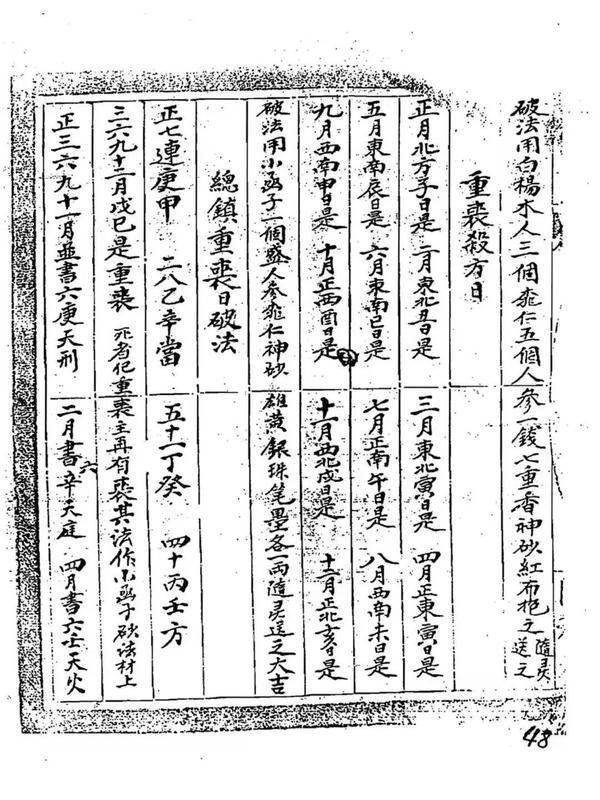 破法用白楊木人三個雍仁五個人參一錢七重香神砂紅布抱之隨灵送之
重喪殺方日
正月北方子日是 二月東北丑日是 三月東北寅日是 四月正東寅日是
五月東南辰日是 六月東南巳日是 七月正南午日是 八月西南未日是
九月西南申日是 十月正西酉日是 十一月西北戌日是 十二月正北亥日是
破法用小函子一個盛人參雍仁神砂雄黄銀珠笔墨各一両隨灵送之大吉
總鎮重喪日破法
正七連庚甲 二八乙辛當 五十一丁癸 四十丙壬方
三六九十二月戊巳是重喪 死者犯重喪主再有喪其法作小函子砂法材上
正三六九十一月並書六庚天刑 二月書六辛天庭 四月書六壬天火
48